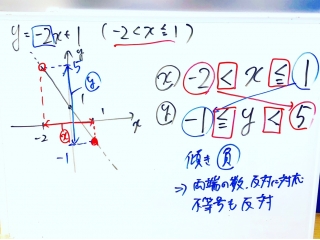 y = -2x + 1 (-2 < x ≦ 1)
y
5
y
1
1
x
-2
x
-1
x -2 < x ≦ 1
y -1 ≦ y < 5
傾き 負
⇒ 両端の数、反対に対応
不等号も反対